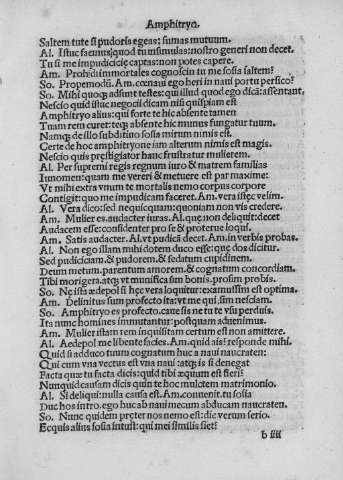 Amphitryo.
Saltem tute si pudoris egeas: sumas mutuum.
Al. Istuc facinus quod tu insimulas: nostro generi non decet.
Tu si me impudiciciæ captas: non potes capere.
Am. Proh dii immortales cognoscin tu me sosia saltem?
So. Propemodū. Am. cœnaui ego heri in naui portu persico?
Al. Mihi quoq; adsunt testes: qui illud quod ego dicā: assentant.
Nescio quid istuc negocii dicam nisi quispiam est
Amphitryo alius: qui forte te hic absente tamen
Tuam rem curet: teq; absente hic munus fungatur tuum.
Namq; de illo subditino sosia mirum nimis est.
Certe de hoc amphitryone iam alterum nimis est magis.
Nescio quis præstigiator hanc frustratur mulierem.
Al. Per supremi regis regnum iuro & matrem familias
Iunonem: quam me vereri & metuere est par maxime:
Vt mihi extra vnum te mortalis nemo corpus corpore
Contigit: quo me impudicam faceret. Am. vera istęc velim.
Al. Vera dico: sed nequicquam: quoniam non vis credere.
Am. Mulier es. audacter iuras. Al. quę non deliquit: decet
Audacem esse: confidenter pro se & proterue loqui.
Am. Satis audacter. Al. vt pudicā decet. Am. in verbis probas.
Al. Non ego illam mihi dotem duco esse: quę dos dicitur.
Sed pudiciciam: & pudorem: & sedatum cupidinem.
Deum metum. parentum amorem: & cognatum concordiam.
Tibi morigera: atq; vt munifica sim bonis. prosim probis.
So. Ne ista ædepol si hęc vera loquitur: examussim est optima.
Am. Delinitus sum profecto ita: vt me qui sim nesciam.
So. Amphitryo es profecto. caue sis ne tu te vsu perduis.
Ita nunc homines immutantur: postquam aduenimus.
Am. Mulier istam rem inquisitam certum est non amittere.
Al. Aedepol me libente facies. Am. quid ais: responde mihi.
Quid si adduco tuum cognatum huc a naui naucraten:
Qui cum vna vectus est vna naui: atq; is si denegat
Facta quæ tu facta dicis: quid tibi æquum est fieri?
Nunquid causam dicis quin te hoc mulctem matrimonio.
Al. Si deliqui: nulla causa est. Am. conuenit. tu sosia
Duc hos intro. ego huc ab naui mecum abducam naucraten.
So. Nunc quidem pręter nos nemo est: dic verum serio.
Ecquis alius sosia intust: qui mei similis siet?
b iiii